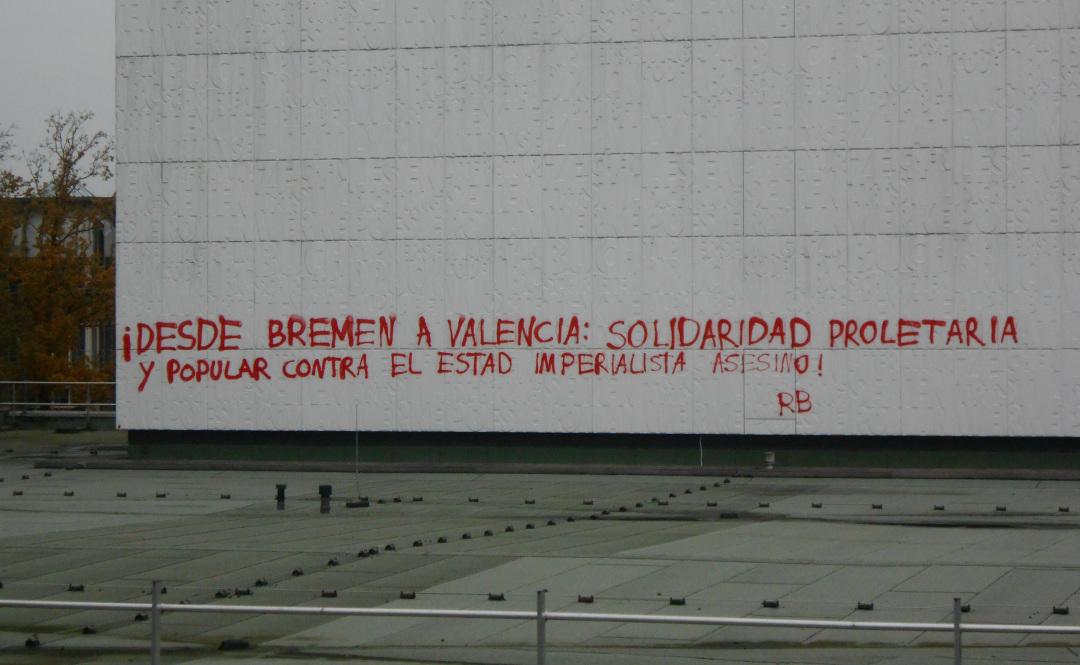 ¡DESDE BREMEN A VALENCIA: SOLIDARIDAD PROLETARIA
Y POPULAR CONTRA EL ESTAD IMPERIALISTA ASESINO!
RB